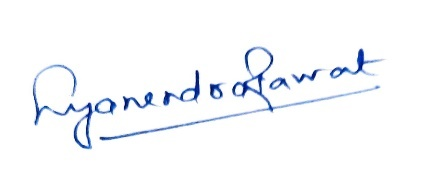 Gyanendra Rawat